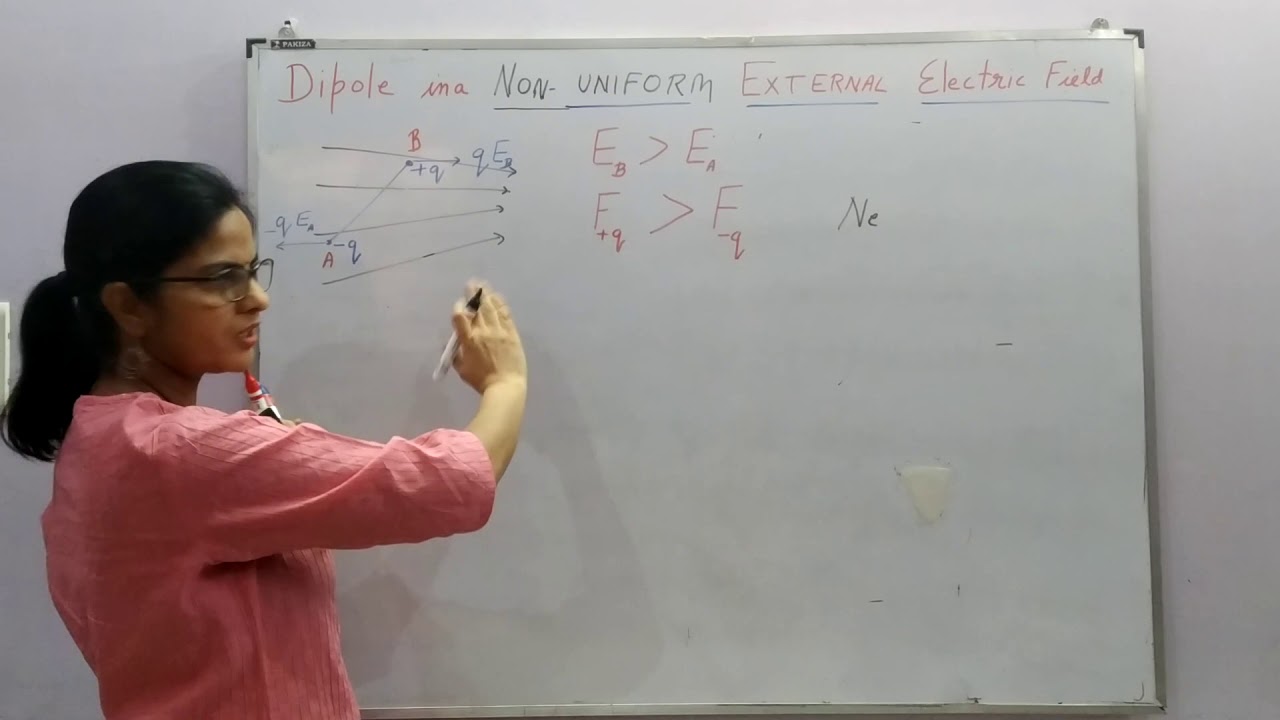 PAKIZA
Dipole in a NON-UNIFORM EXTERNAL Electric Field
B
+q
qE_B
-qE_A
-q
A
E_B > E_A
F_+q > F_-q
Ne